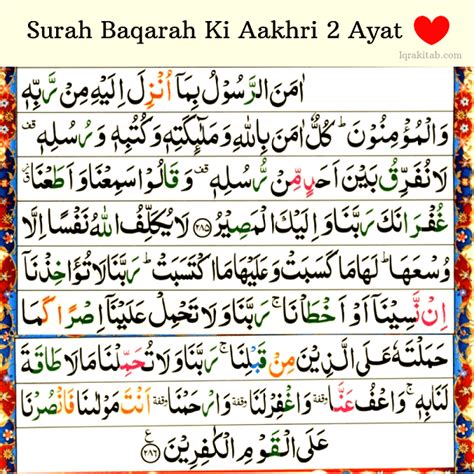 Surah Baqarah Ki Aakhri 2 Ayat
Iqrakitab.com
اٰمَنَ الرَّسُوۡلُ بِمَاۤ اُنۡزِلَ اِلَيۡهِ مِنۡ رَّبِّهٖ
وَالۡمُؤۡمِنُوۡنَ‌ؕ كُلٌّ اٰمَنَ بِاللّٰهِ وَمَلٰٓٮِٕكَتِهٖ وَكُتُبِهٖ وَرُسُلِهٖ قف
لَا نُفَرِّقُ بَيۡنَ اَحَدٍ مِّنۡ رُّسُلِهٖ قف وَقَالُوۡا سَمِعۡنَا وَاَطَعۡنَا
غُفۡرَانَكَ رَبَّنَا وَاِلَيۡكَ الۡمَصِيۡرُ ﴿۲۸۵﴾ لَا يُكَلِّفُ اللّٰهُ نَفۡسًا اِلَّا
وُسۡعَهَا ؕ لَهَا مَا كَسَبَتۡ وَعَلَيۡهَا مَا اكۡتَسَبَتۡ ؕ رَبَّنَا لَا تُؤَاخِذۡنَاۤ
اِنۡ نَّسِيۡنَاۤ اَوۡ اَخۡطَاۡنَا ۚ رَبَّنَا وَلَا تَحۡمِلۡ عَلَيۡنَاۤ اِصۡرًا كَمَا
حَمَلۡتَهٗ عَلَى الَّذِيۡنَ مِنۡ قَبۡلِنَا ۚ رَبَّنَا وَلَا تُحَمِّلۡنَا مَا لَا طَاقَةَ
لَنَا بِهٖ ۚ وَاعۡفُ عَنَّا وقفة وَاغۡفِرۡ لَنَا وقفة وَارۡحَمۡنَا وقفة اَنۡتَ مَوۡلٰٮنَا فَانۡصُرۡنَا
عَلَى الۡقَوۡمِ الۡكٰفِرِيۡنَ ﴿۲۸۶﴾ ع